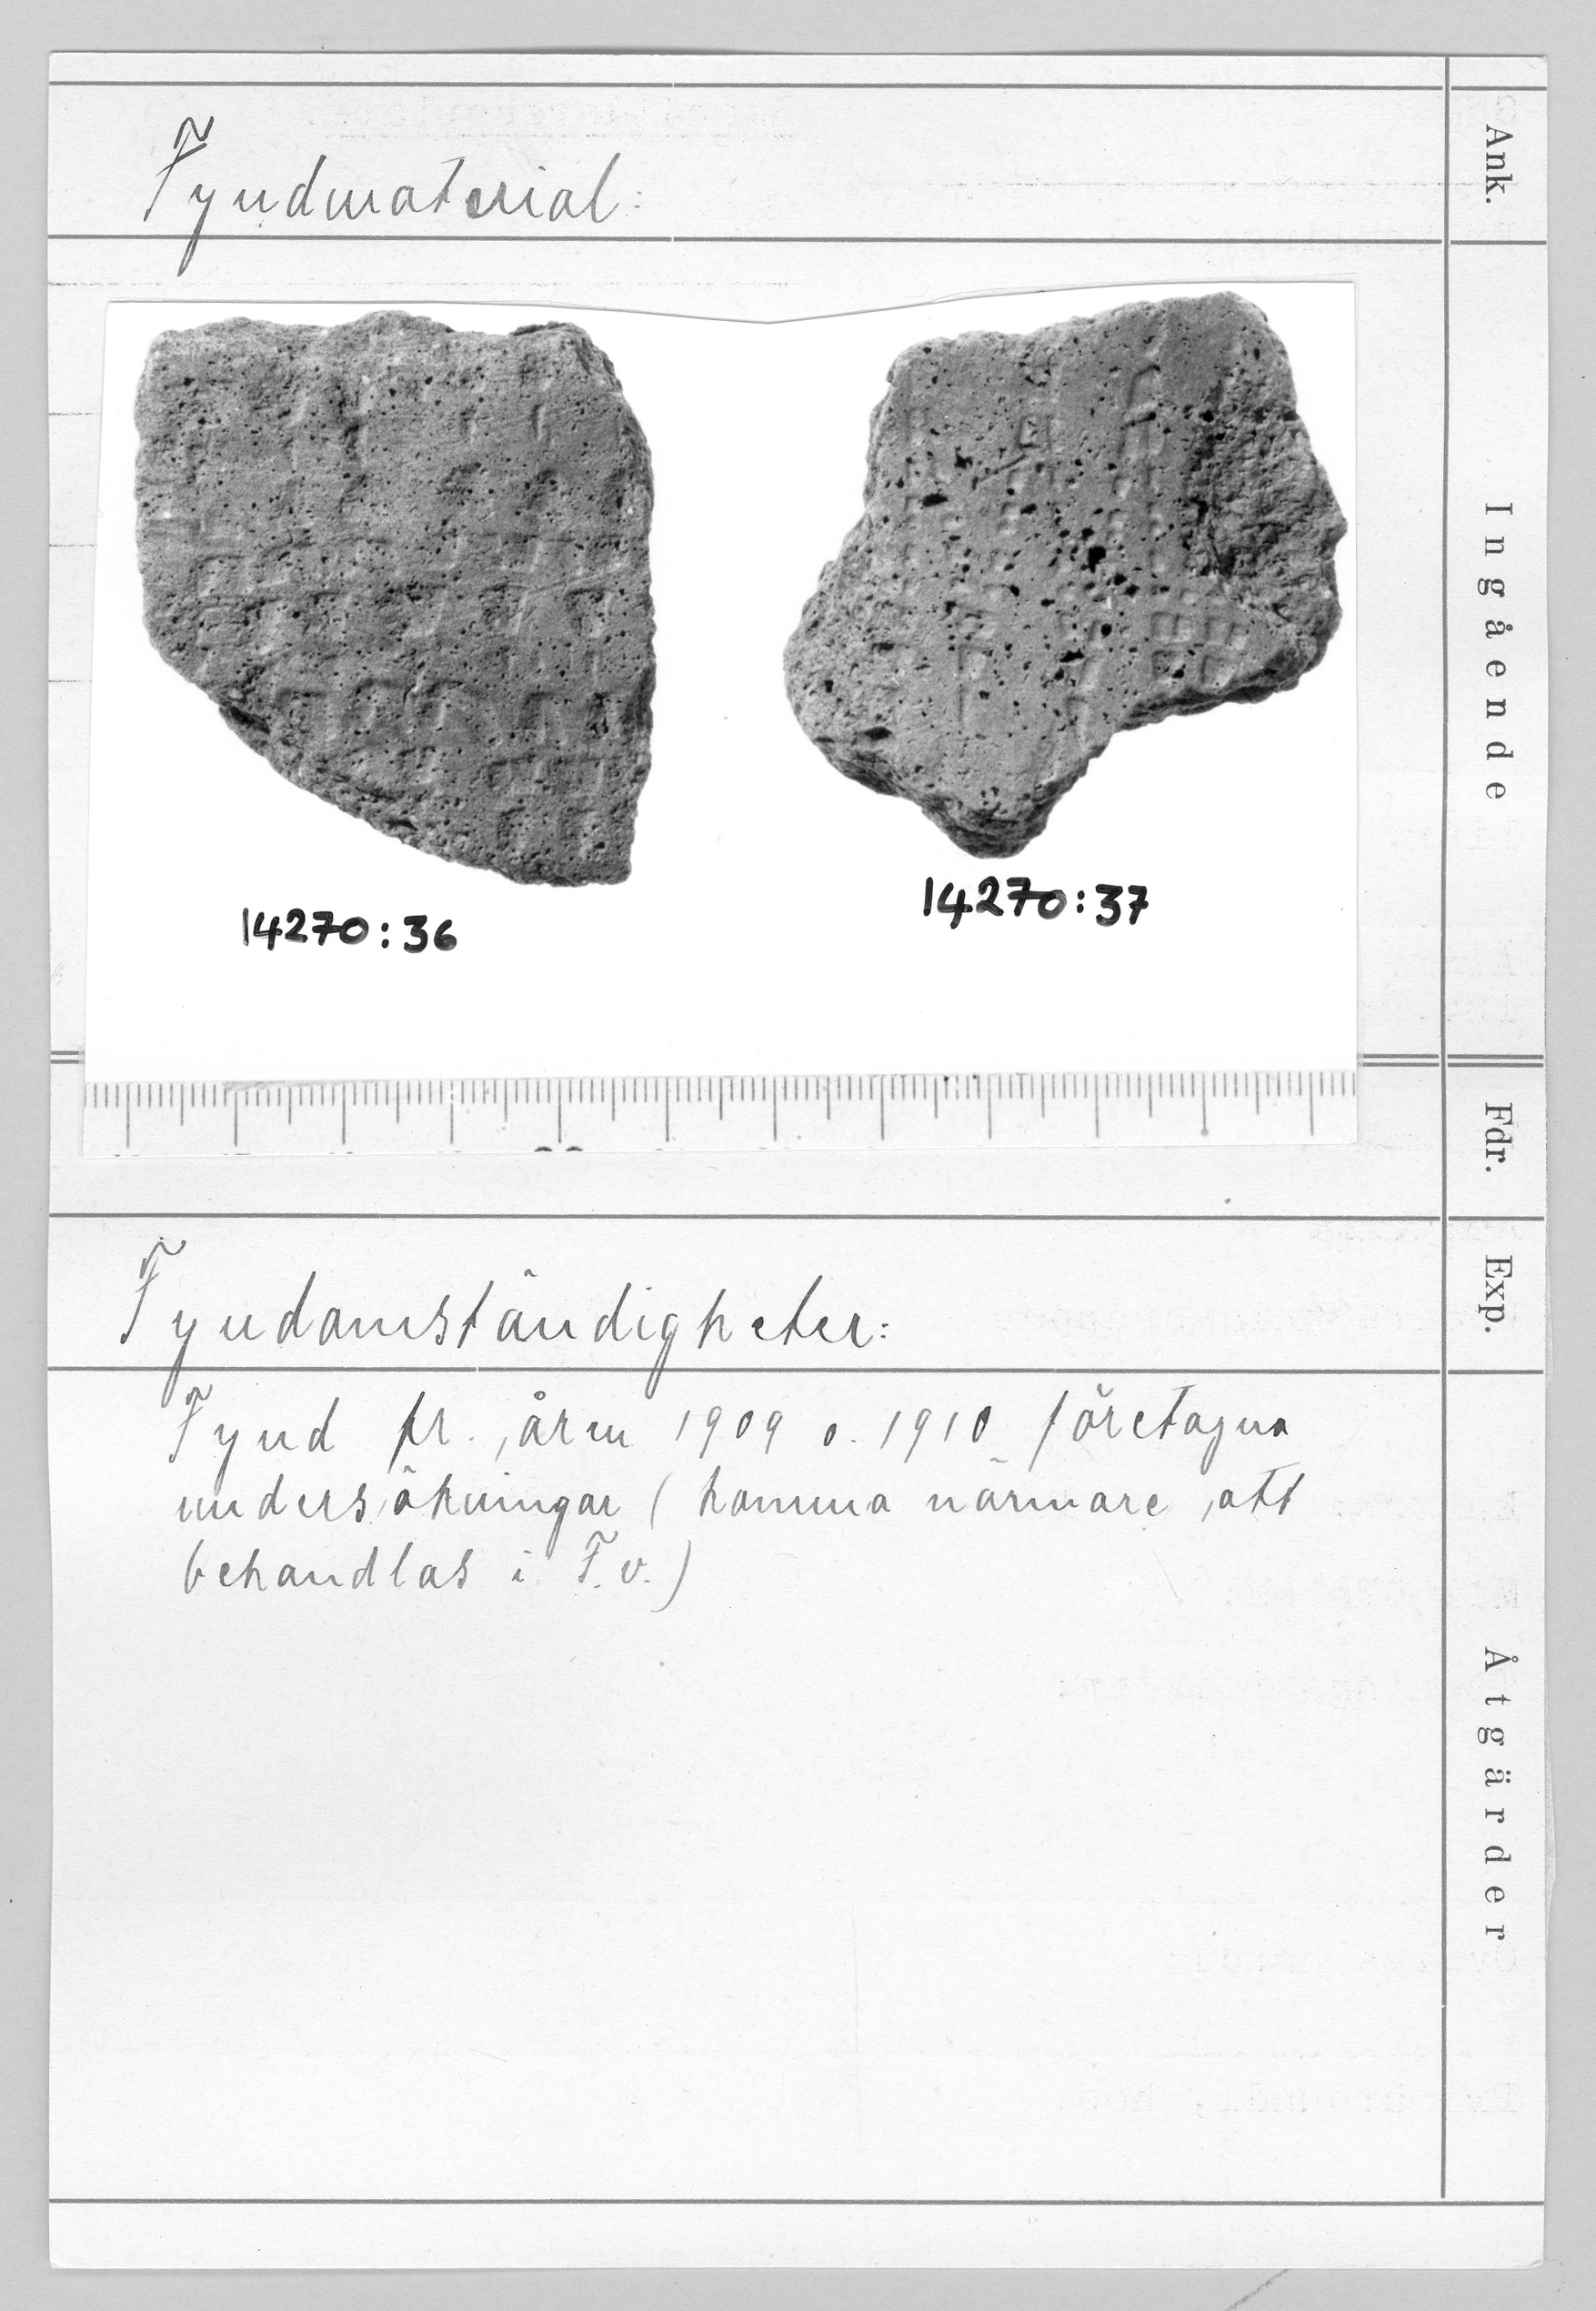 Fyndmaterial:
14270:36
14270:37
Fyndomständigheter:
Fynd fr. åren 1909 o. 1910 företagna
undersökningar (komma närmare att
behandlas i F.v.)
Ank.
Ingående
Fdr.
Exp.
Åtgärder